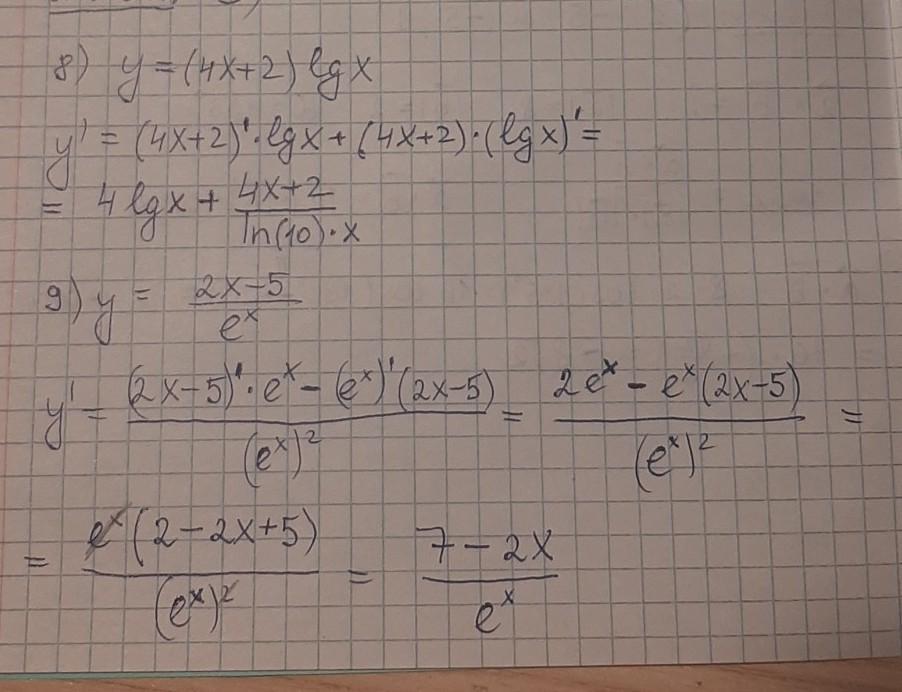 8) y = (4x+2) lg x
y' = (4x+2)'·lg x + (4x+2)·(lg x)' =
= 4 lg x + \frac{4x+2}{ln(10)·x}
9) y = \frac{2x-5}{e^x}
y' = \frac{(2x-5)'·e^x - (e^x)'(2x-5)}{(e^x)^2} = \frac{2e^x - e^x(2x-5)}{(e^x)^2} =
= \frac{e^x(2-2x+5)}{(e^x)^2} = \frac{7-2x}{e^x}